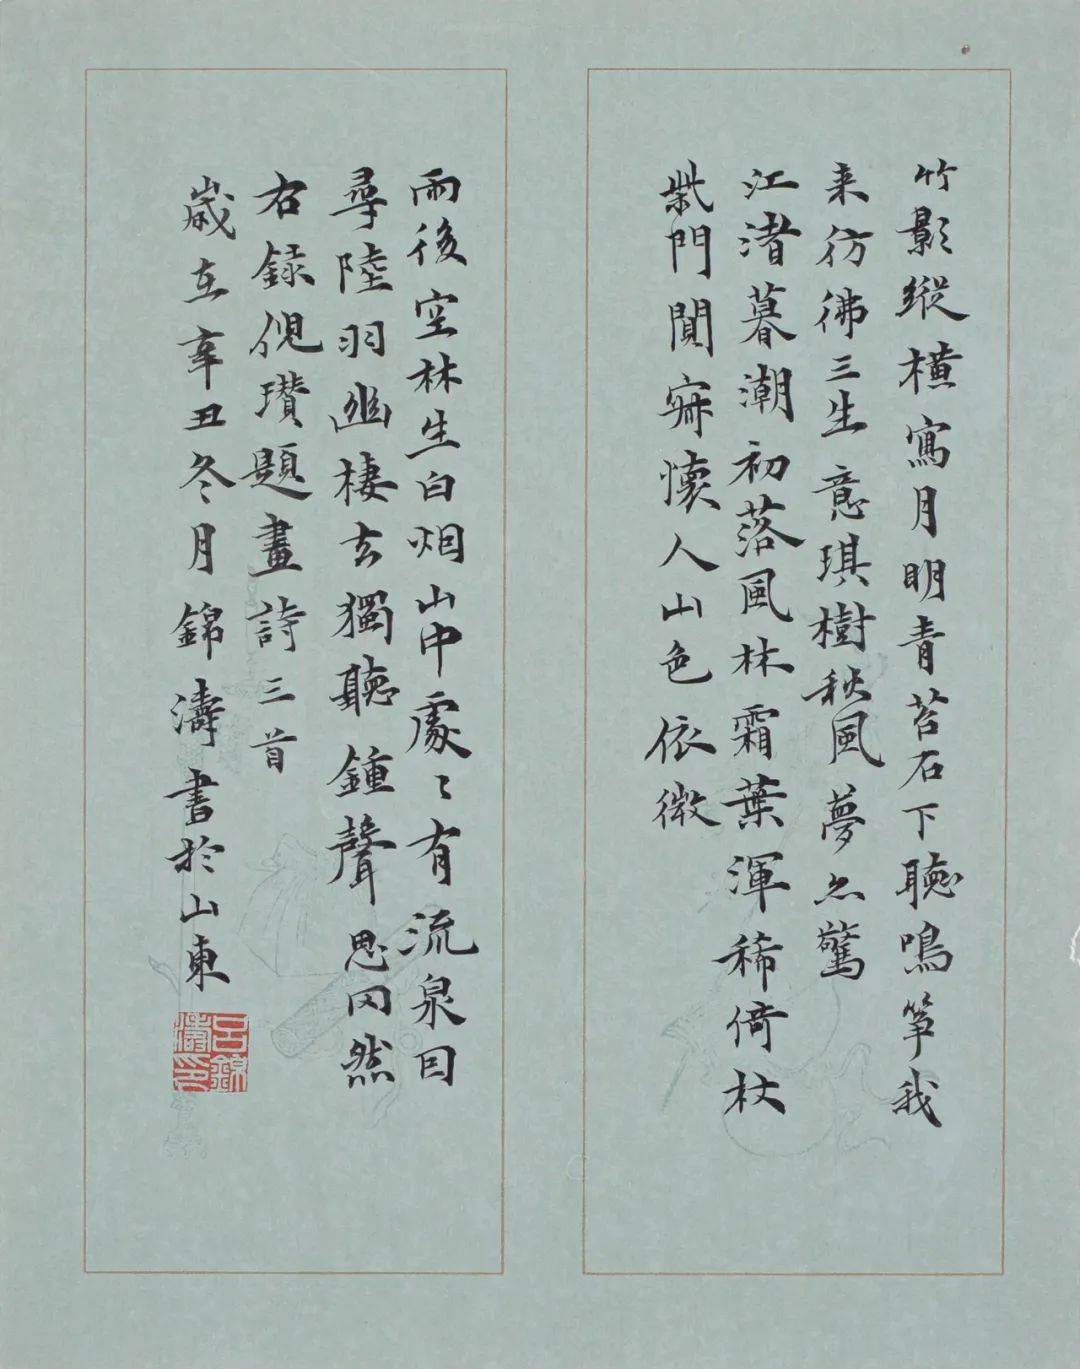 竹影縱橫寫月明青苔石下聽鳴箏我
来彷彿三生意琪樹秋風夢亦驚
江渚暮潮初落風林霜葉渾稀倚杖
柴門閴寂懷人山色依微
雨後空林生白烟山中處〻有流泉因
尋陸羽幽棲去獨聽鍾聲思冈然
右録倪瓚題畫詩三首
歲在辛丑冬月錦濤書於山東
呂錦
濤印